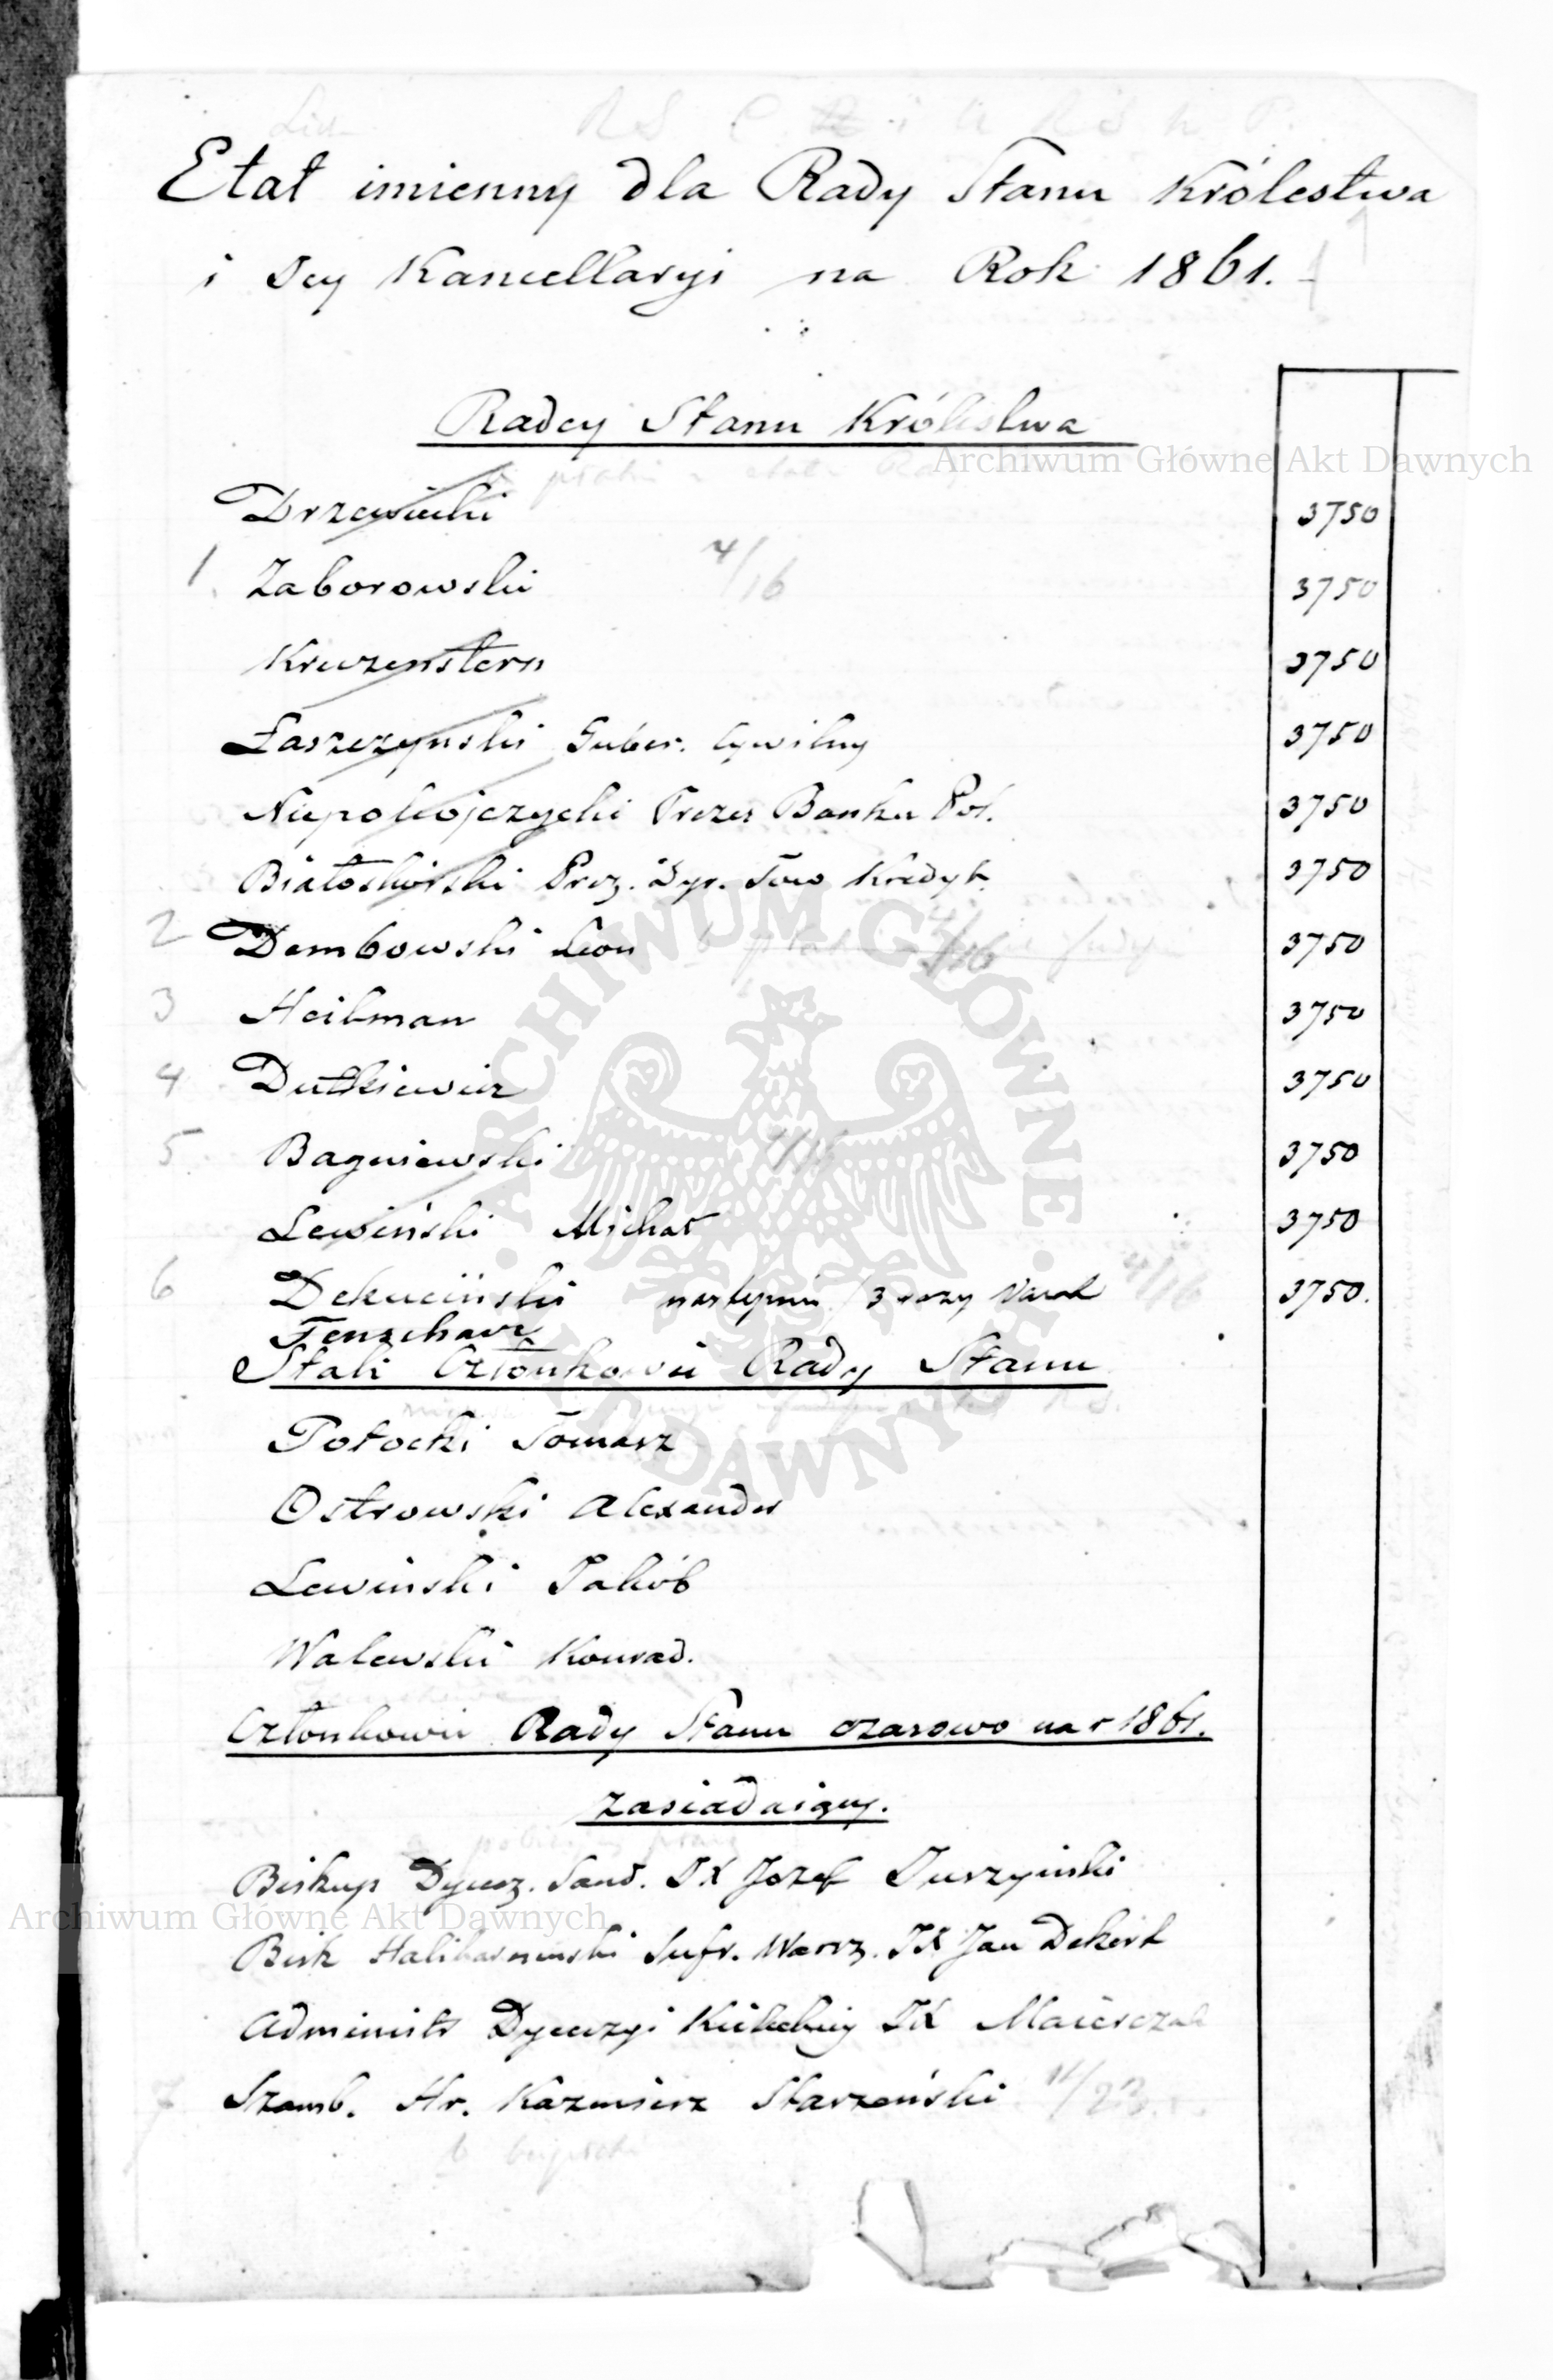 Etat imienny dla Rady Stanu Królestwa
i Jey Kancellaryi na Rok 1861.
Radcy Stanu Królestwa
Archiwum Główne Akt Dawnych
Drzewiecki 3750
1. Zaborowski 4/16 3750
Kruzenstern 3750
Łaszczynski Guber. Cywilny 3750
Niepokojczycki Prezes Banku Pol. 3750
Białoskórski Prez. Dyr. Tow Kredyt. 3750
2 Dembowski Leon 3750
3 Heilman 3750
4 Dutkiewicz 3750
5 Bagniewski 4/16 3750
Lewiński Michał 3750
6 Dekuciński 4/16 3750.
Fenzhave
Stali Członkowie Rady Stanu
Potocki Tomasz
Ostrowski Alexander
Lewinski Jakób
Walewski Konrad.
Członkowie Rady Stanu czasowo na r 1861.
zasiadaiący.
Biskup Dyecz. Sand. JX Jozef Juszyński
Archiwum Główne Akt Dawnych
Bisk Sufr. Warsz. JX Jan Dekert
Administr Dyecezyi Kieleckiey JX Maierczak
7 Szamb. Hr. Kazmierz Starzeński 11/23
ARCHIWUM GŁÓWNE AKT DAWNYCH